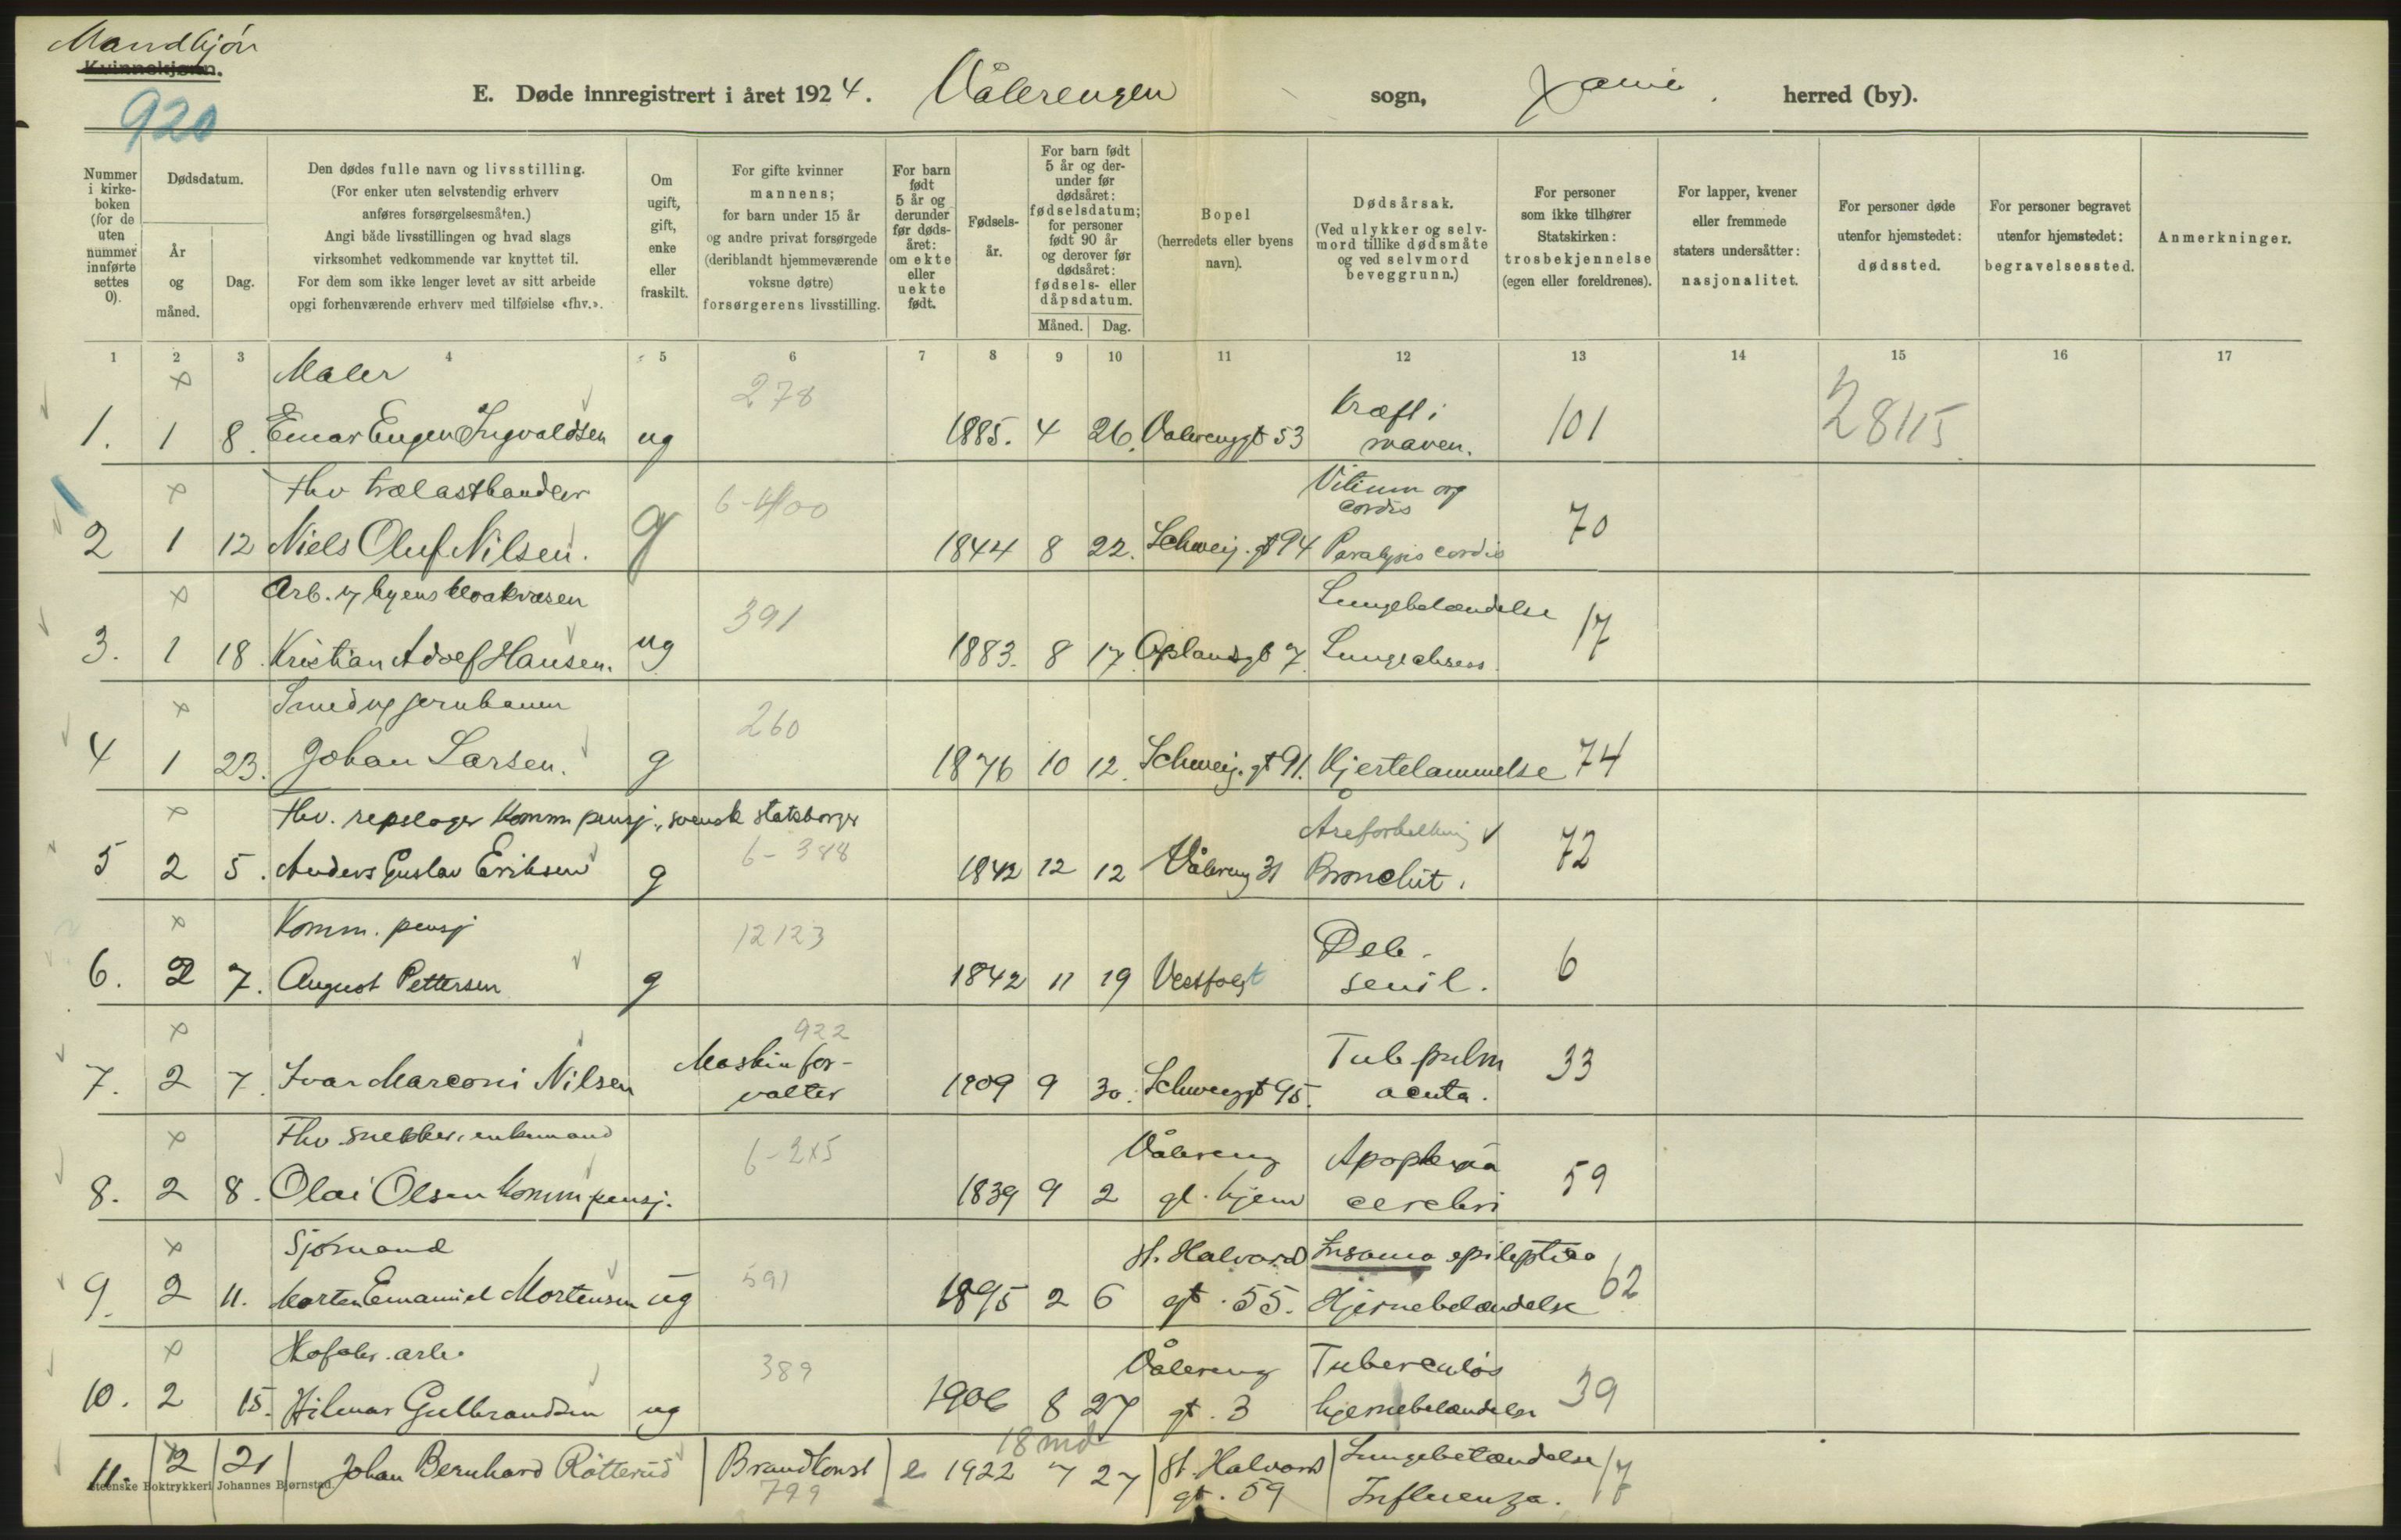 Mandkjøn
Kvinnekjønn.
920
E. Døde innregistrert i året 1924. Vålerengen sogn, herred (by).
Nummer i kirke-boken (for de uten nummer innførte settes 0).
Dødsdatum.
År og måned.
Dag.
Den dødes fulle navn og livsstilling.
(For enker uten selvstendig erhverv
anføres forsørgelsesmåten.)
Angi både livsstillingen og hvad slags
virksomhet vedkommende var knyttet til.
For dem som ikke lenger levet av sitt arbeide
opgi forhenværende erhverv med tilføielse «fhv.».
Om ugift, gift, enke eller fraskilt.
For gifte kvinner
mannens;
for barn under 15 år
og andre privat forsørgede
(deriblandt hjemmeværende
voksne døtre)
forsørgerens livsstilling.
For barn født 5 år og derunder før døds-året: om ekte eller uekte født.
Fødsels-år.
For barn født 5 år og der-under før dødsåret: fødselsdatum; for personer født 90 år og derover før dødsåret: fødsels- eller dåpsdatum.
Måned. Dag.
Bopel
(herredets eller byens navn).
Dødsårsak.
(Ved ulykker og selv-mord tillike dødsmåte og ved selvmord beveggrunn.)
For personer som ikke tilhører Statskirken: trosbekjennelse (egen eller foreldrenes).
For lapper, kvener eller fremmede staters undersåtter: nasjonalitet.
For personer døde utenfor hjemstedet: dødssted.
For personer begravet utenfor hjemstedet: begravelsessted.
Anmerkninger.
1 2 3 4 5 6 7 8 9 10 11 12 13 14 15 16 17
x Maler 278 Kræft i
1. 1 8. Einar Eugen Ingvaldsen ug 1885. 4 26. Valerenggt 53 maven. 101 28115
x fhv trælasthandler 6-400 Vitium org cordis
2 1 12 Niels Oluf Nilsen. g 1844 8 22. Schweig. gt 94 Paralysis cordis 70
x Arb. v byens kloakvæsen 391 Lungebetændelse
3. 1 18. Kristian Adolf Hansen. ug 1883. 8 17 Oplandsgt 7. Lungeabsess. 17
x Smed v jernbanen 260
4 1 23. Johan Larsen. g 1876 10 12. Schweig. gt 91. Hjertelammelse 74
x fhv. repslager Komm pensj., svensk statsborger Åreforkalkning
5 2 5. Anders Gustav Eriksen g 6-388 1842 12 12 Vålereng 31 Bronchit. 72
x Komm. pensj 12123 Deb.
6. 2 7. August Pettersen g 1842 11 19 Vestfolgt senil. 6
x 922 Maskinfor- Tub pulm
7. 2 7. Ivar Marconi Nilsen valter 1909 9 30. Schweiggt 95. acuta. 33
x Fhv. snekker, enkemand 6-215 Vålereng Apoplexia
8. 2 8. Olai Olsen Komm pensj. 1839 9 2 gl. hjem cerebri 59
x Sjømand St. Halvard Insania epileptica
9. 2 11. Morten Emanuel Mortensen ug 591 1895 2 6 gt. 55. Hjernebetændelse 62
x arb. 389 Vålereng Tuberculøs
10. 2 15. Hilmar Gulbrandsen ug 1906 8 27 gt. 3 hjernebetændelse 39
18 md
11. 2 21 Johan Bernhard Rötterud Brandkonst e 1922 7 27 St. Halvards Lungebetændelse 17
799 gt. 59 Influenza.
Steenske Boktrykkeri Johannes Bjørnstad.